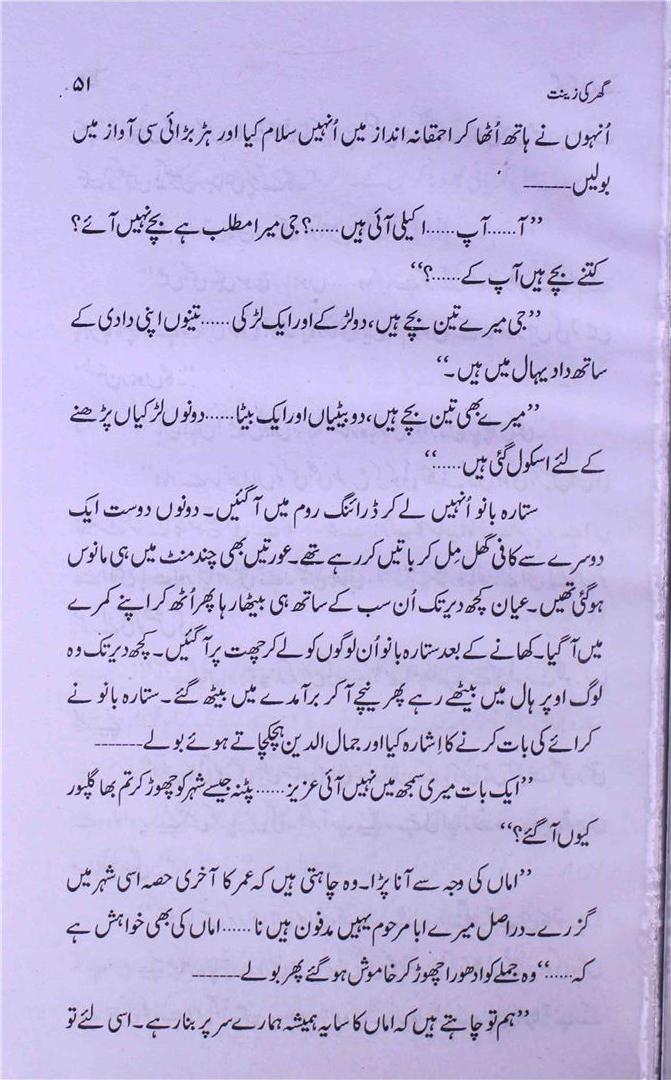 گھر کی زینت
۵۱
اُنہوں نے ہاتھ اُٹھا کر احمقانہ انداز میں اُنہیں سلام کیا اور ہڑبڑائی سی آواز میں
بولیں-------
”آ......آپ......اکیلی آئی ہیں......؟ جی میرا مطلب ہے بچے نہیں آئے؟
کتنے بچے ہیں آپ کے......؟“
”جی میرے تین بچے ہیں، دو لڑکے اور ایک لڑکی......تینوں اپنی دادی کے
ساتھ دادیہال میں ہیں۔“
”میرے بھی تین بچے ہیں، دو بیٹیاں اور ایک بیٹا......دونوں لڑکیاں پڑھنے
کے لئے اسکول گئی ہیں......“
ستارہ بانو اُنہیں لے کر ڈرائنگ روم میں آگئیں۔ دونوں دوست ایک
دوسرے سے کافی گھل مِل کر باتیں کر رہے تھے۔ عورتیں بھی چند منٹ میں ہی مانوس
ہوگئی تھیں۔ عیان کچھ دیر تک اُن سب کے ساتھ ہی بیٹھا رہا پھر اُٹھ کر اپنے کمرے
میں آگیا۔ کھانے کے بعد ستارہ بانو اُن لوگوں کو لے کر چھت پر آگئیں۔ کچھ دیر تک وہ
لوگ اوپر ہال میں بیٹھے رہے پھر نیچے آکر برآمدے میں بیٹھ گئے۔ ستارہ بانو نے
کرائے کی بات کرنے کا اِشارہ کیا اور جمال الدین ہچکچاتے ہوئے بولے-------
”ایک بات میری سمجھ میں نہیں آئی عزیز......پٹنہ جیسے شہر کو چھوڑ کر تم بھاگلپور
کیوں آگئے؟“
”اماں کی وجہ سے آنا پڑا۔ وہ چاہتی ہیں کہ عمر کا آخری حصہ اسی شہر میں
گزرے۔ دراصل میرے ابا مرحوم یہیں مدفون ہیں نا......اماں کی بھی خواہش ہے
کہ......“ وہ جملے کو ادھورا چھوڑ کر خاموش ہوگئے پھر بولے-------
”ہم تو چاہتے ہیں کہ اماں کا سایہ ہمیشہ ہمارے سر پر بنا رہے۔ اسی لئے تو